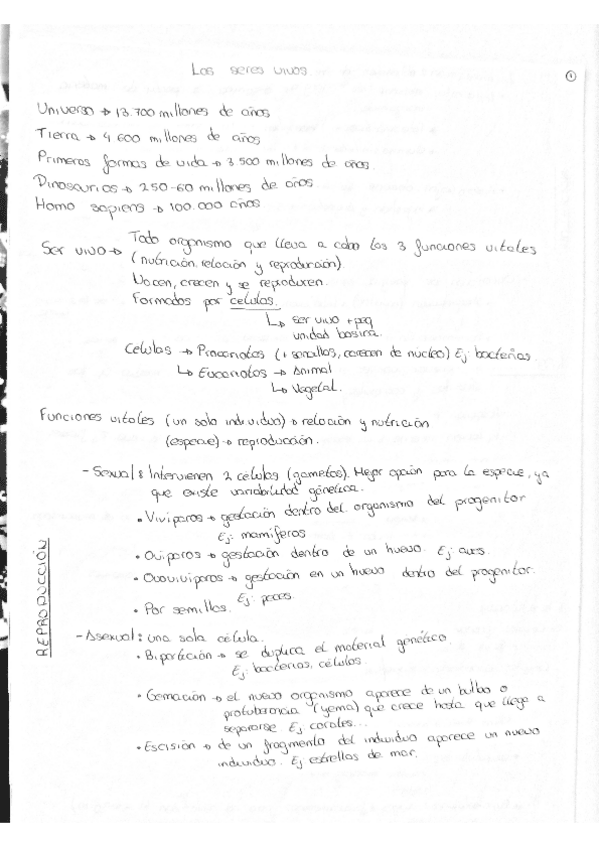 Los seres vivos.
1
Universo → 13.700 millones de años
Tierra → 4.600 millones de años
Primeras formas de vida → 3.500 millones de años.
Dinosaurios → 250-60 millones de años.
Homo sapiens → 100.000 años
Ser vivo → Todo organismo que lleva a cabo las 3 funciones vitales
(nutrición, relación y reproducción).
Nacen, crecen y se reproducen.
Formados por células.
↳ ser vivo + peq
unidad básica.
Células → Procariotas (+ sencillas, carecen de nucleo) Ej: bacterias
↳ Eucariotas → Animal
↳ Vegetal.
Funciones vitales (un solo individuo) → relación y nutrición
(especie) → reproducción.
REPRODUCCIÓN
- Sexual: Intervienen 2 células (gametos). Mejor opción para la especie, ya
que existe variabilidad génetica.
• Vivíparos → gestación dentro del organismo del progenitor
Ej: mamiferos
• Oviparos → gestación dentro de un huevo. Ej: aves.
• Ovovivíparos → gestación en un huevo dentro del progenitor.
Ej: peces.
• Por semillas.
- Asexual: una sola célula.
• Bipartición → se duplica el material genético.
Ej: bacterias, células.
• Gemación → el nuevo organismo aparece de un bulbo o
protuberancia (yema) que crece hasta que llega a
separarse Ej: corales...
• Escisión → de un fragmento del individuo aparece un nuevo
individuo. Ej estrellas de mar.